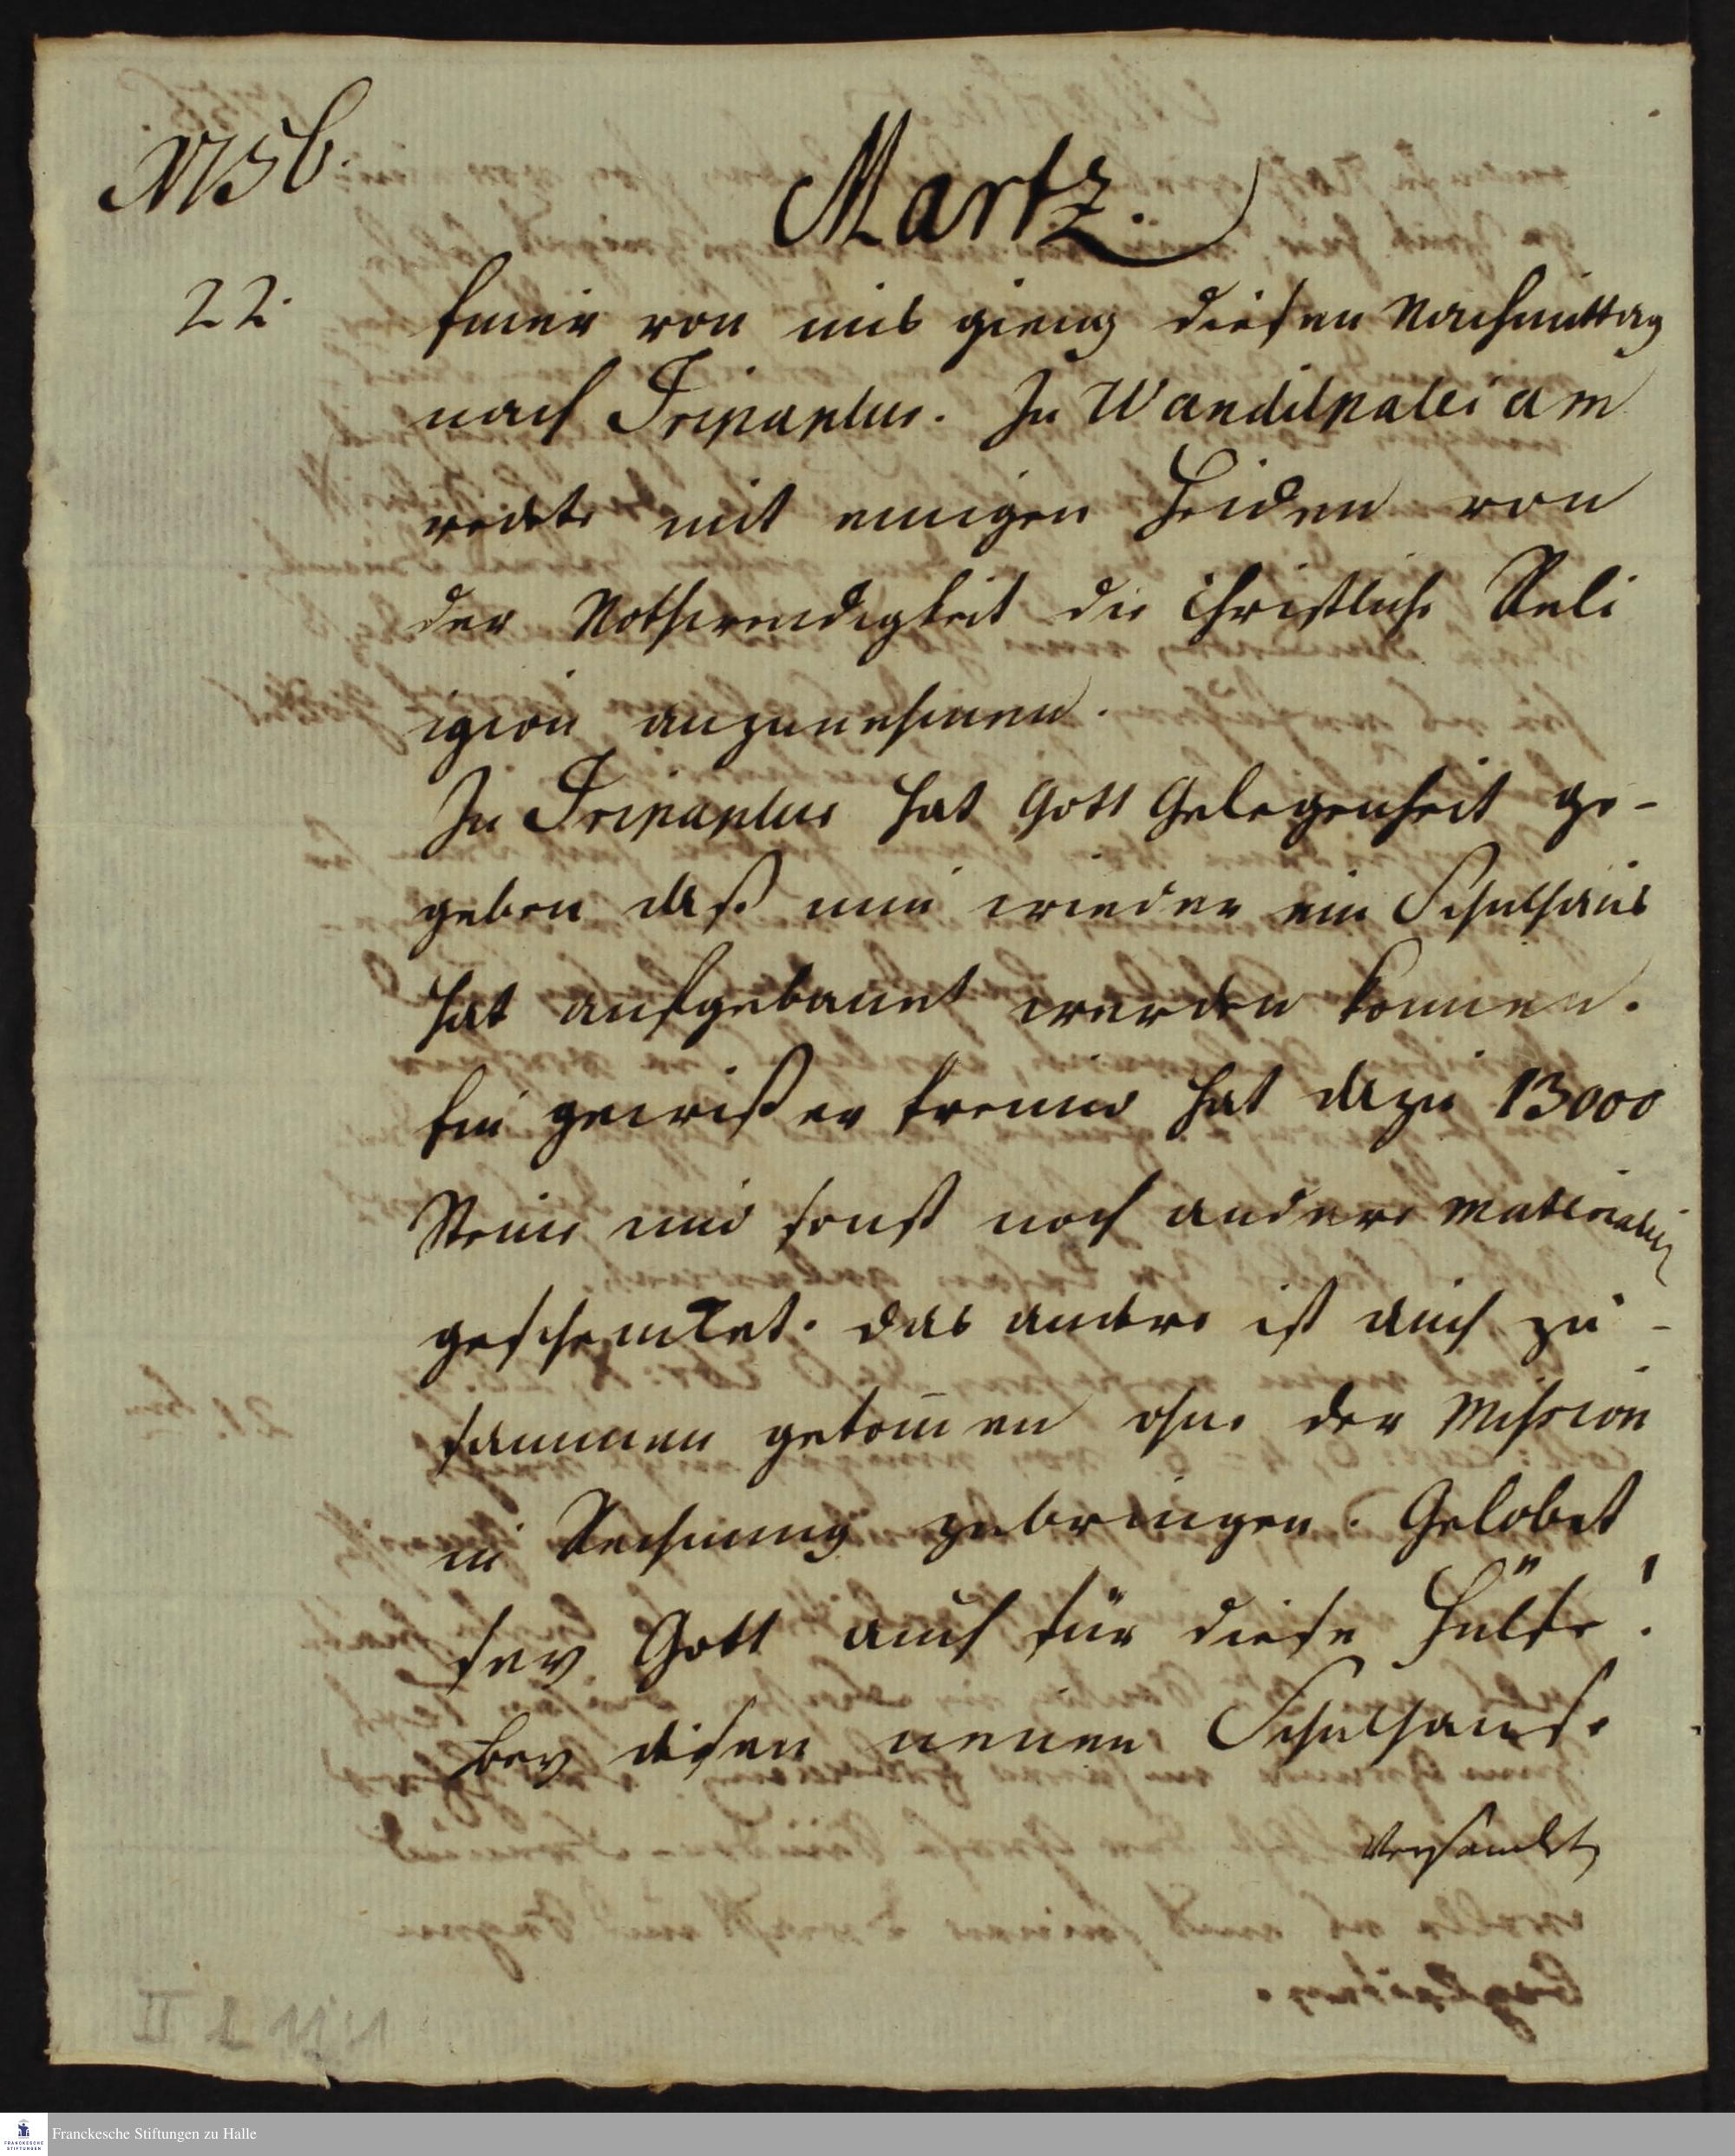 1756.
Martz.
22. Einer von uns gieng diesen Nachmittag
nach Tripaplur. In Wandilpaleiam
redete mit einigen Heiden von
der Nothwendigkeit die Christliche Reli
igion anzunehmen.
In Tripaplur hat Gott Gelegenheit ge-
geben daß nun wieder ein Schulhaus
hat aufgebauet werden konnen.
Ein gewißer Freund hat dazu 13000
Steine und sonst noch andere Materialien
geschencket. das andere ist auch zu-
sammen gekom̄en ohne der Mission
in Rechnung zubringen. Gelobet
sey Gott auch für diese Hülfe!
Bey disen neuen Schulhause
Versamlet
Franckesche Stiftungen zu Halle
FRANCKESCHE
STIFTUNGEN